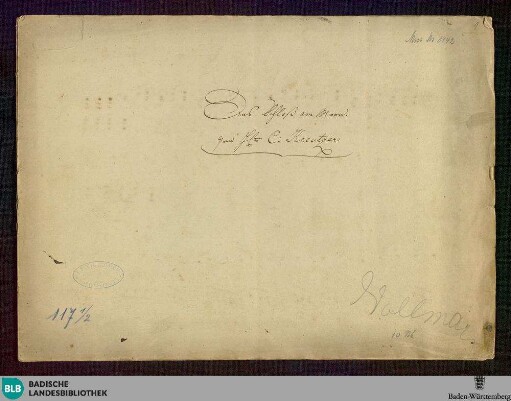 Mus. Hs.
Das Schloß am Meere
von
C. Kreutzer
117 1/2
Vollmar
BLB BADISCHE
LANDESBIBLIOTHEK
Baden-Württemberg